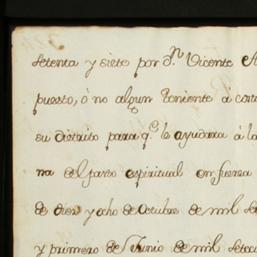 setenta y siete por Dn Vicente
puesto, ó no algun theniente à
su distrito para qe le ayudara á la
na del pasto espiritual en fuerza
de diez y ocho de Octubre de mil se
y primero de Junio de mil setec